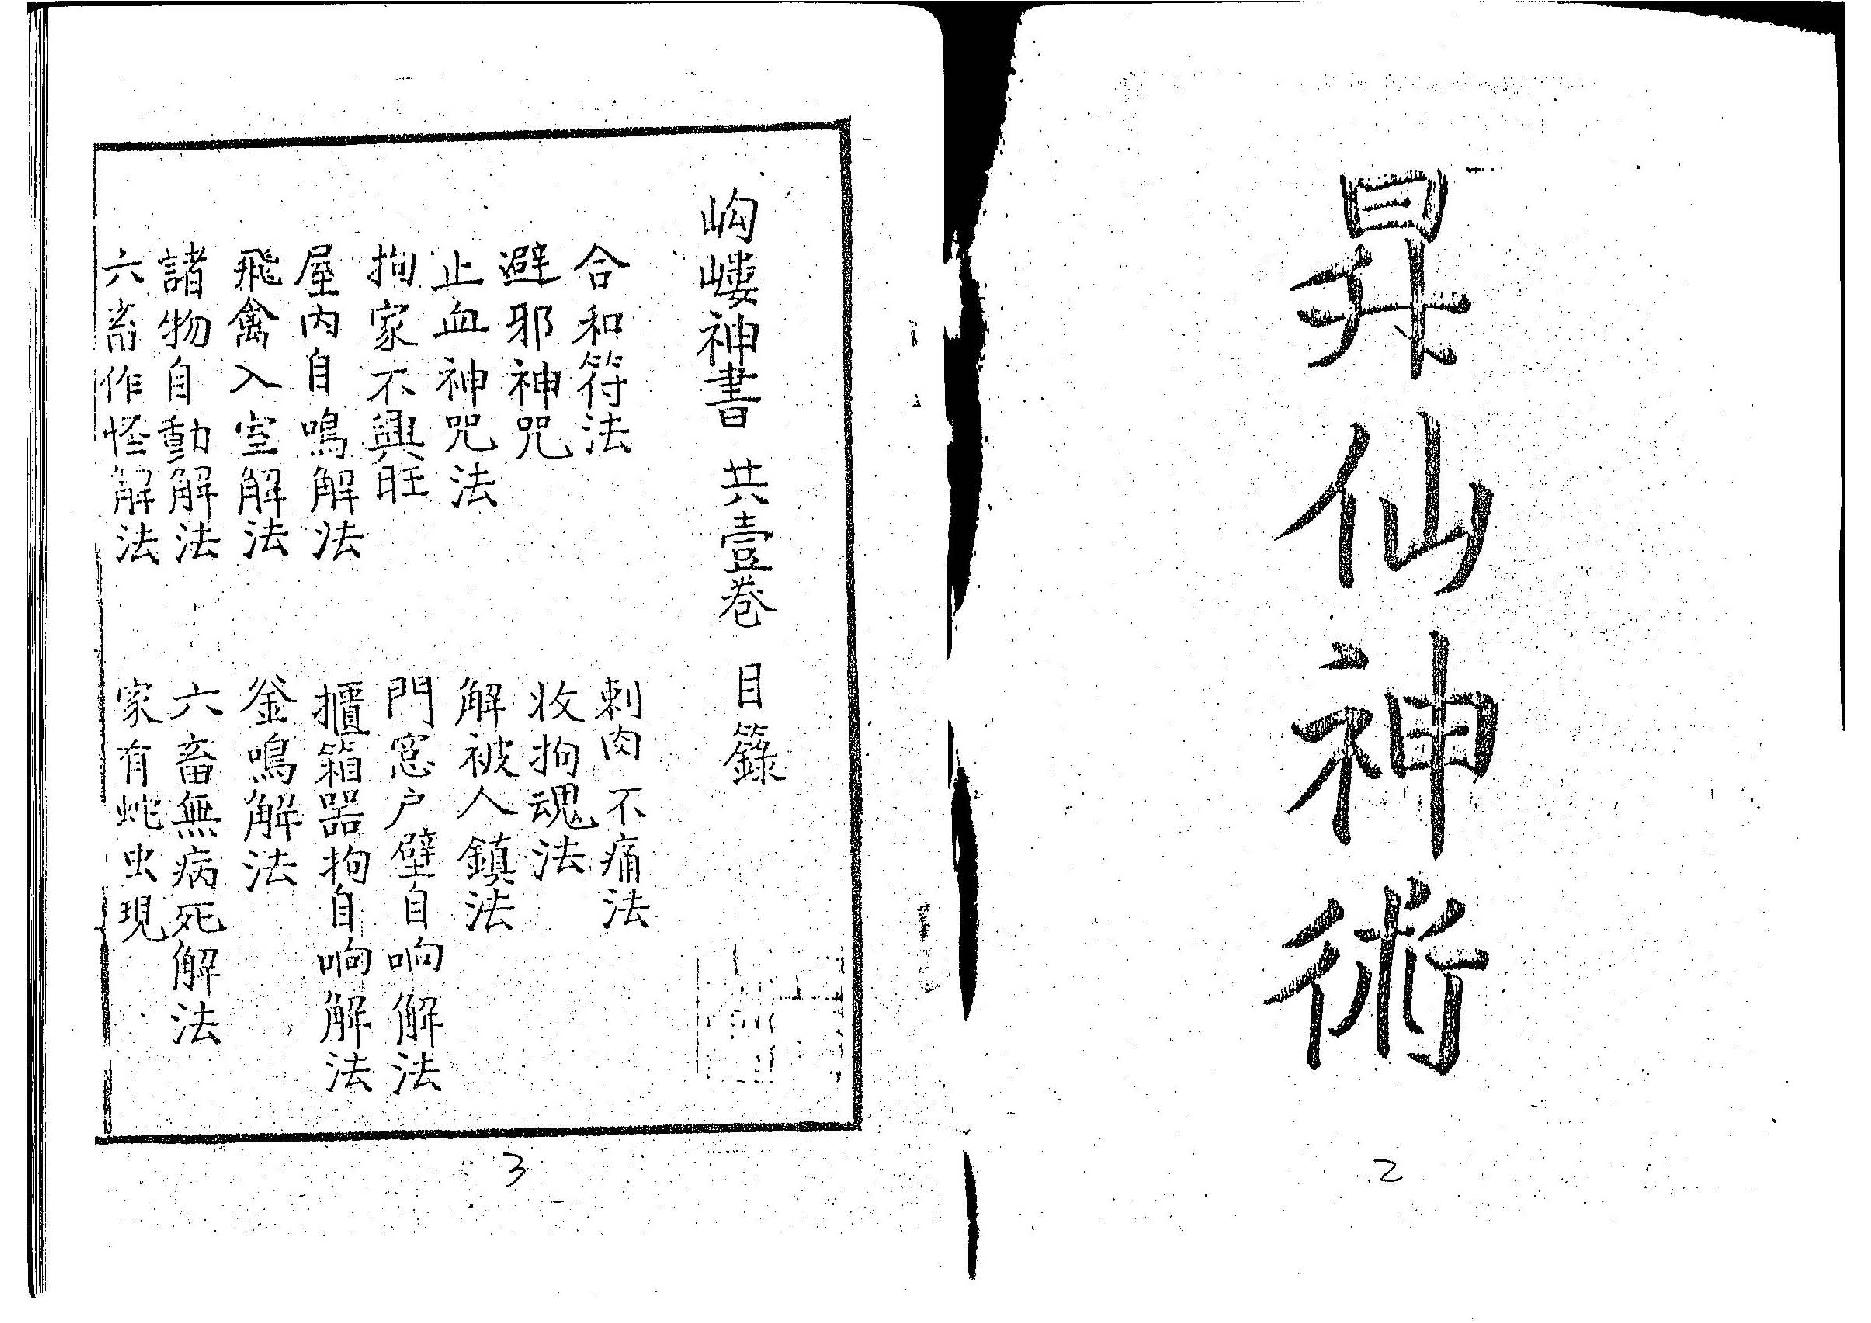 昇仙神術
2
岣嶁神書 共壹卷 目錄
合和符法
刺肉不痛法
避邪神咒
收拘魂法
止血神咒法
解被人鎮法
拘家不興旺
門窓户壁自响解法
屋内自鳴解法
擓箱器拘自响解法
飛禽入室解法
釜鳴解法
諸物自動解法
六畜無病死解法
六畜作怪解法
家有蛇虫現
3